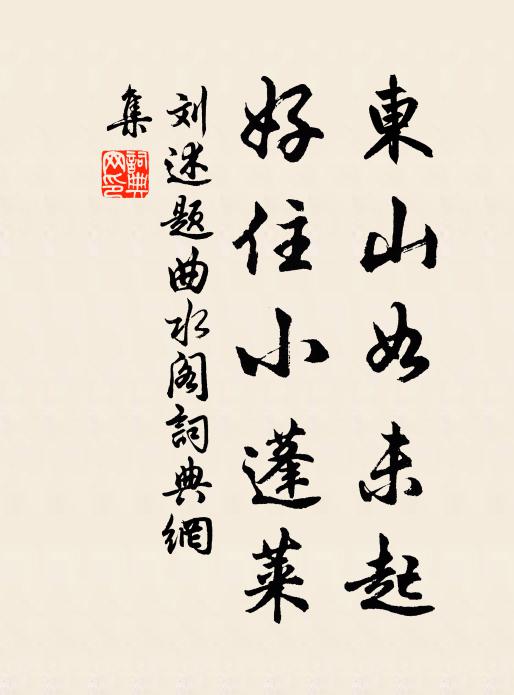 東山如未起
好住小蓬萊
刘述题曲水阁詞典網
集
詞典
网印